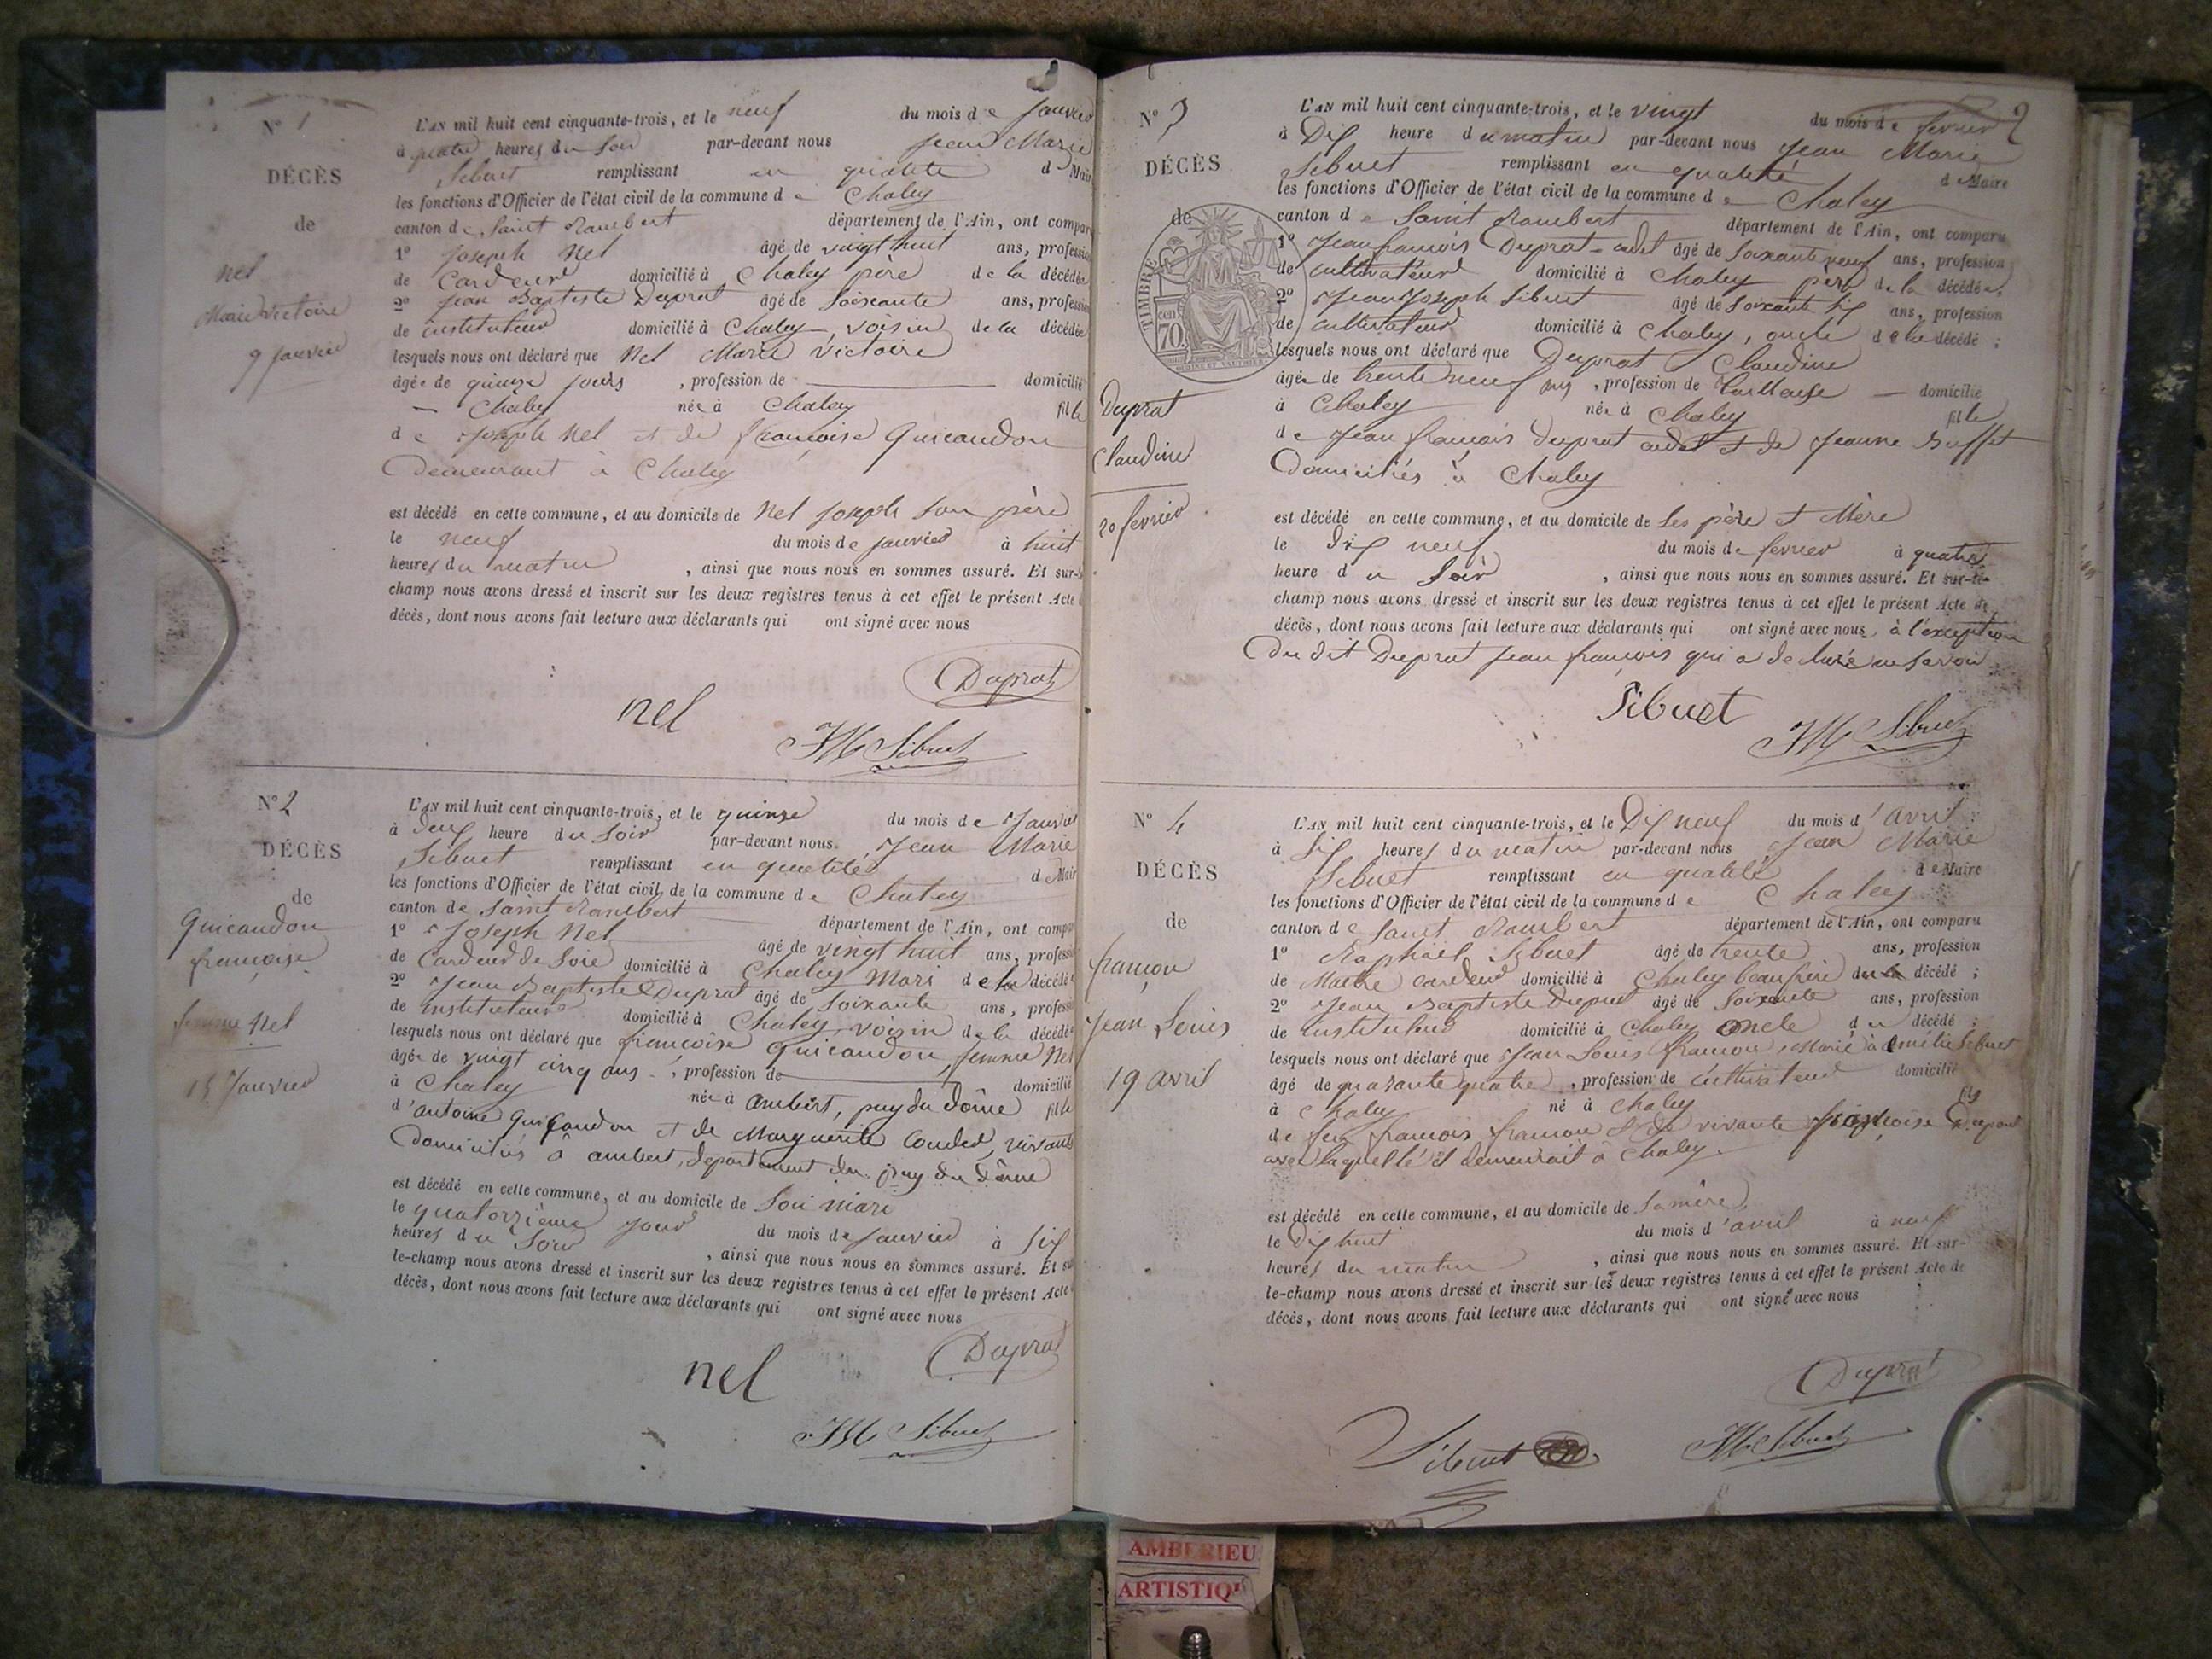 N° 1
DÉCÈS
de
Nel
Marie Victoire
9 janvier
L'AN mil huit cent cinquante-trois, et le neuf du mois de janvier
à quatre heures du soir par-devant nous Jean Marie
Sibuet remplissant en qualité d Mair
les fonctions d'Officier de l'état civil de la commune de Chaley
canton de Saint Rambert département de l'Ain, ont compar
1° Joseph Nel âgé de vingt huit ans, profession
de Cardeur domicilié à Chaley père de la décédée
2° Jean Baptiste Duprat âgé de soixante ans, profession
de instituteur domicilié à Chaley, voisin de la décédée
lesquels nous ont déclaré que Nel Marie Victoire
âgée de quinze jours, profession de domicilié
Chaley née à Chaley fille
de Joseph Nel et de françoise Guicaudon
Demeurant à Chaley
est décédé en cette commune, et au domicile de Nel joseph son père
le neuf du mois de janvier à huit
heures du matin, ainsi que nous nous en sommes assuré. Et sur-
champ nous avons dressé et inscrit sur les deux registres tenus à cet effet le présent Acte
décès, dont nous avons fait lecture aux déclarants qui ont signé avec nous
Duprat
nel
JM Sibuet
N° 2
DÉCÈS
de
Guicaudon
françoise
femme Nel
15 Janvier
L'AN mil huit cent cinquante-trois, et le quinze du mois de Janvier
à deux heure du soir par-devant nous Jean Marie
Sibuet remplissant en qualité de Mair
les fonctions d'Officier de l'état civil de la commune de Chaley
canton de Saint Rambert département de l'Ain, ont comp
1° Joseph Nel âgé de vingt huit ans, profess
de Cardeur de Soie domicilié à Chaley Mari de la décédé
2° Jean Baptiste Duprat âgé de soixante ans, profess
de instituteur domicilié à Chaley, voisin de la décédé
lesquels nous ont déclaré que françoise Guicaudon, femme Nel
âgée de vingt cinq ans, profession de domicilié
à Chaley née à Ambert, puy du Dôme fille
d'antoine Guicaudon et de Marguerite, vivants
Domiciliés à ambert, département du puy du Dôme
est décédé en cette commune, et au domicile de son mari
le quatorzième jour du mois de janvier à six
heures du soir, ainsi que nous nous en sommes assuré. Et su
le-champ nous avons dressé et inscrit sur les deux registres tenus à cet effet le présent Acte
décès, dont nous avons fait lecture aux déclarants qui ont signé avec nous
Duprat
nel
JM Sibuet
2
N° 3
DÉCÈS
de
TIMBRE
70 cen
Duprat
Claudine
20 fevrier
L'AN mil huit cent cinquante-trois, et le vingt du mois de fevrier
à Dix heure du matin par-devant nous Jean Marie
Sibuet remplissant en qualité de Maire
les fonctions d'Officier de l'état civil de la commune de Chaley
canton de Saint Rambert département de l'Ain, ont comparu
1° Jean françois Duprat-cadet âgé de soixante neuf ans, profession
de cultivateur domicilié à Chaley père de la décédée,
2° Jean Joseph Sibuet âgé de soixante six ans, profession
de cultivateur domicilié à Chaley, oncle de la décédé ;
lesquels nous ont déclaré que Duprat Claudine
âgée de trente neuf ans, profession de tailleuse domicilié
à Chaley née à Chaley fille
de Jean françois Duprat cadet et de Jeanne Buffet
Domiciliés à Chaley
est décédé en cette commune, et au domicile de ses père et Mère
le dix neuf du mois de fevrier à quatre
heure du soir, ainsi que nous nous en sommes assuré. Et sur-le-
champ nous avons dressé et inscrit sur les deux registres tenus à cet effet le présent Acte de
décès, dont nous avons fait lecture aux déclarants qui ont signé avec nous, à l'exception
du dit Duprat jean françois qui a declaré ne savoir
Sibuet
JM Sibuet
N° 4
DÉCÈS
de
françon
Jean Louis
19 avril
L'AN mil huit cent cinquante-trois, et le Dix neuf du mois d'avril
à six heures du matin par-devant nous Jean Marie
Sibuet remplissant en qualité de Maire
les fonctions d'Officier de l'état civil de la commune de Chaley
canton de Saint Rambert département de l'Ain, ont comparu
1° Raphaël Sibuet âgé de trente ans, profession
de Maitre cardeur domicilié à Chaley beau frère du décédé ;
2° Jean Baptiste Duprat âgé de soixante ans, profession
de instituteur domicilié à Chaley oncle du décédé ;
lesquels nous ont déclaré que Jean Louis françon, Marié à Emélie Sibuet
âgé de quarante quatre, profession de cultivateur domicilié
à Chaley né à Chaley fils
de feu françois françon et de vivante françoise Duprat
avec laquelle il demeurait à Chaley.
est décédé en cette commune, et au domicile de sa mère,
le Dix huit du mois d'avril à neuf
heures du matin, ainsi que nous nous en sommes assuré. Et sur-
le-champ nous avons dressé et inscrit sur les deux registres tenus à cet effet le présent Acte de
décès, dont nous avons fait lecture aux déclarants qui ont signé avec nous
Duprat
Sibuet
JM Sibuet
AMBERIEU
ARTISTIQ